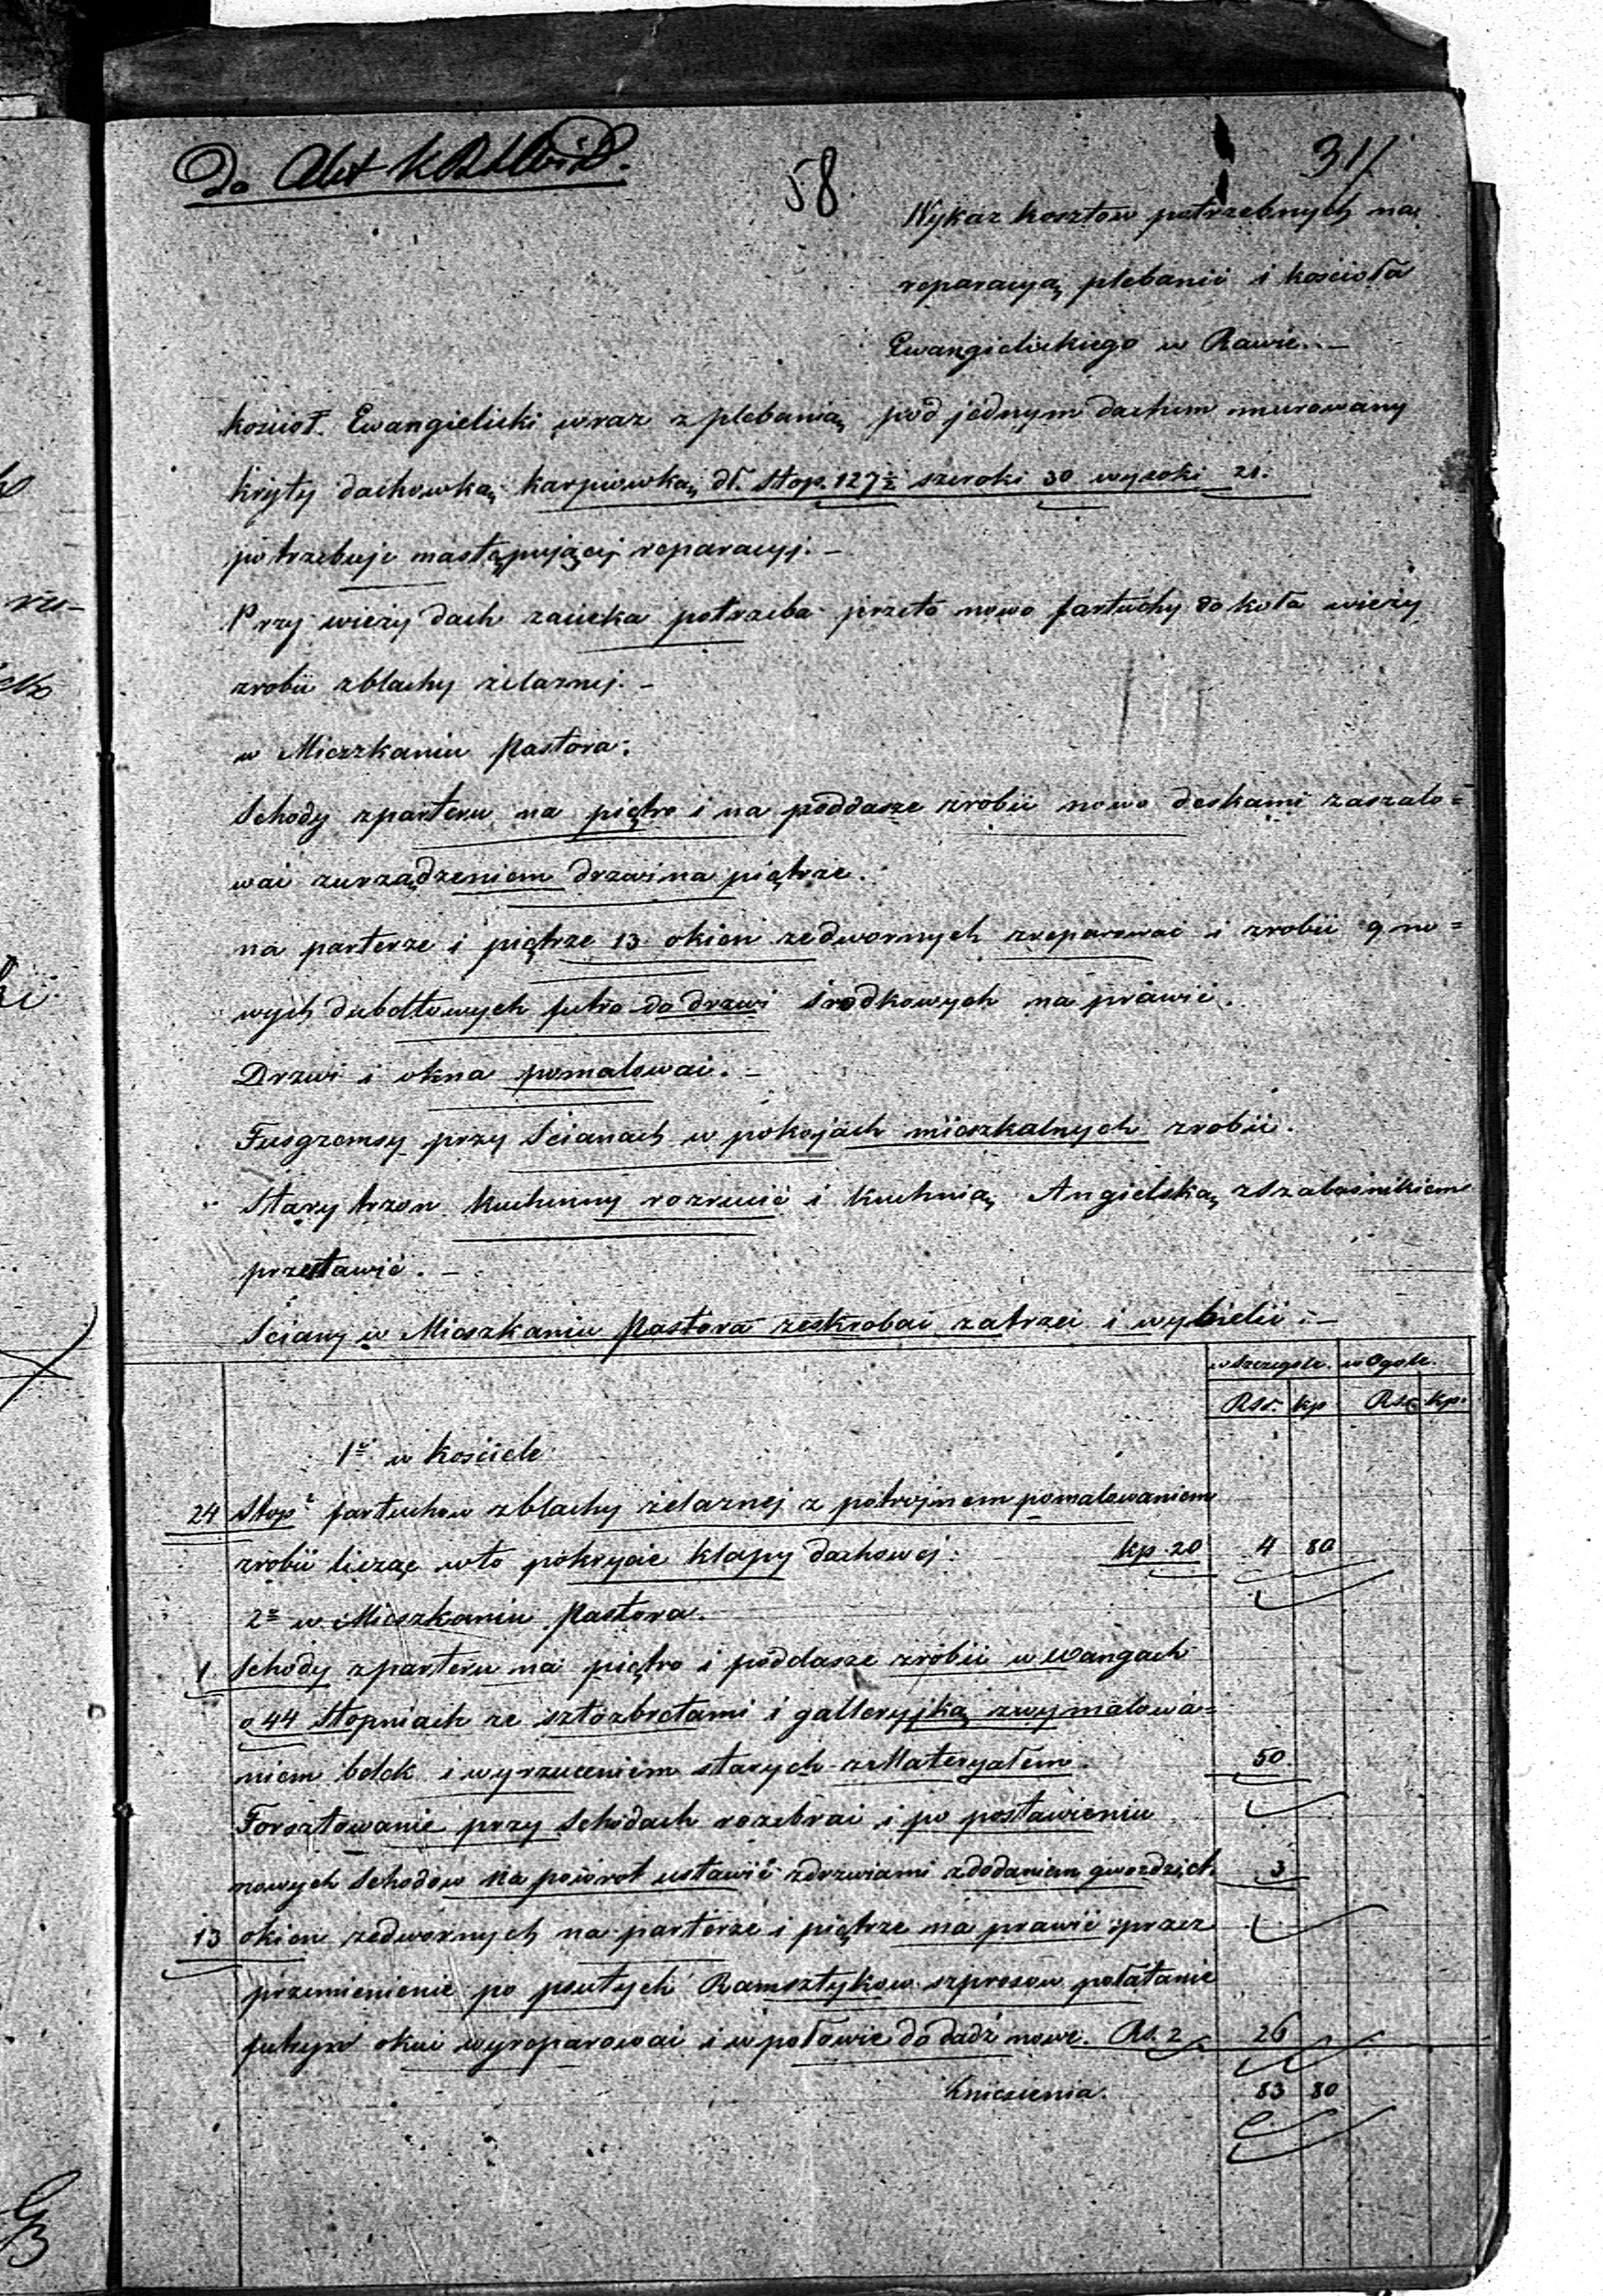 Do Akt
58
31/
Wykaz kosztów potrzebnych na
reparacyą plebanii i kościoła
Ewangielickiego w Rawie. –
Kościoł Ewangielicki wraz z plebanią pod jednym dachem murowany
kryty dachowką karpiowką dł. stop. 127½ szeroki 30 wysoki 21.
potrzebuje następującej reparacyj. –
Przy wieży dach zacieka potrzeba przeto nowo fartuchy do koła wieży
zrobić z blachy żelaznej. –
w Mieszkaniu Pastora.
Schody z parteru na piętro i na poddasze zrobić nowo deskami zaszalo=
wać z urządzeniem drzwi na piętrze.
na parterze i piętrze 13 okien zedwornych zreparować i zrobić 9 no=
wych dubeltowych futro do drzwi środkowych na prawić.
Drzwi i okna pomalować. –
Fusgzemsy przy ścianach w pokojach mieszkalnych zrobić.
Stary trzon kuchenny rozrucić i kuchnią Angielską z szabaśnikiem
przestawić. –
Ściany w Mieszkaniu Pastora zeskrobać zatrzeć i wybielić. –
w Szczegole. w Ogole.
RSr. kp RSr. kp.
1º w Kościele
24 Stop² fartuchow z blachy żelaznej z potrojnem pomalowaniem
zrobić licząc w to pokrycie klapy dachowej. kp 20 4 80
2º w Mieszkaniu Pastora.
1 Schody z parteru na piętro i poddasze zrobić w wangach
o 44 stopniach ze sztozbretami i galleryjką z wymalowa=
niem belek i wyrzuceniem starych z Materyałem. 50
Forsztowanie przy schodach rozebrać i po postawieniu
nowych schodow na powrot ustawić z drzwiami z dodaniem gwozdzi 3
13 okien zedwornych na parterze i piętrze na prawić przez
przemienienie po psutych Ramsztykow szprosow połatanie
futryn okuć wyreparować i w połowie do dadź nowe. Rs. 2 26
83 80